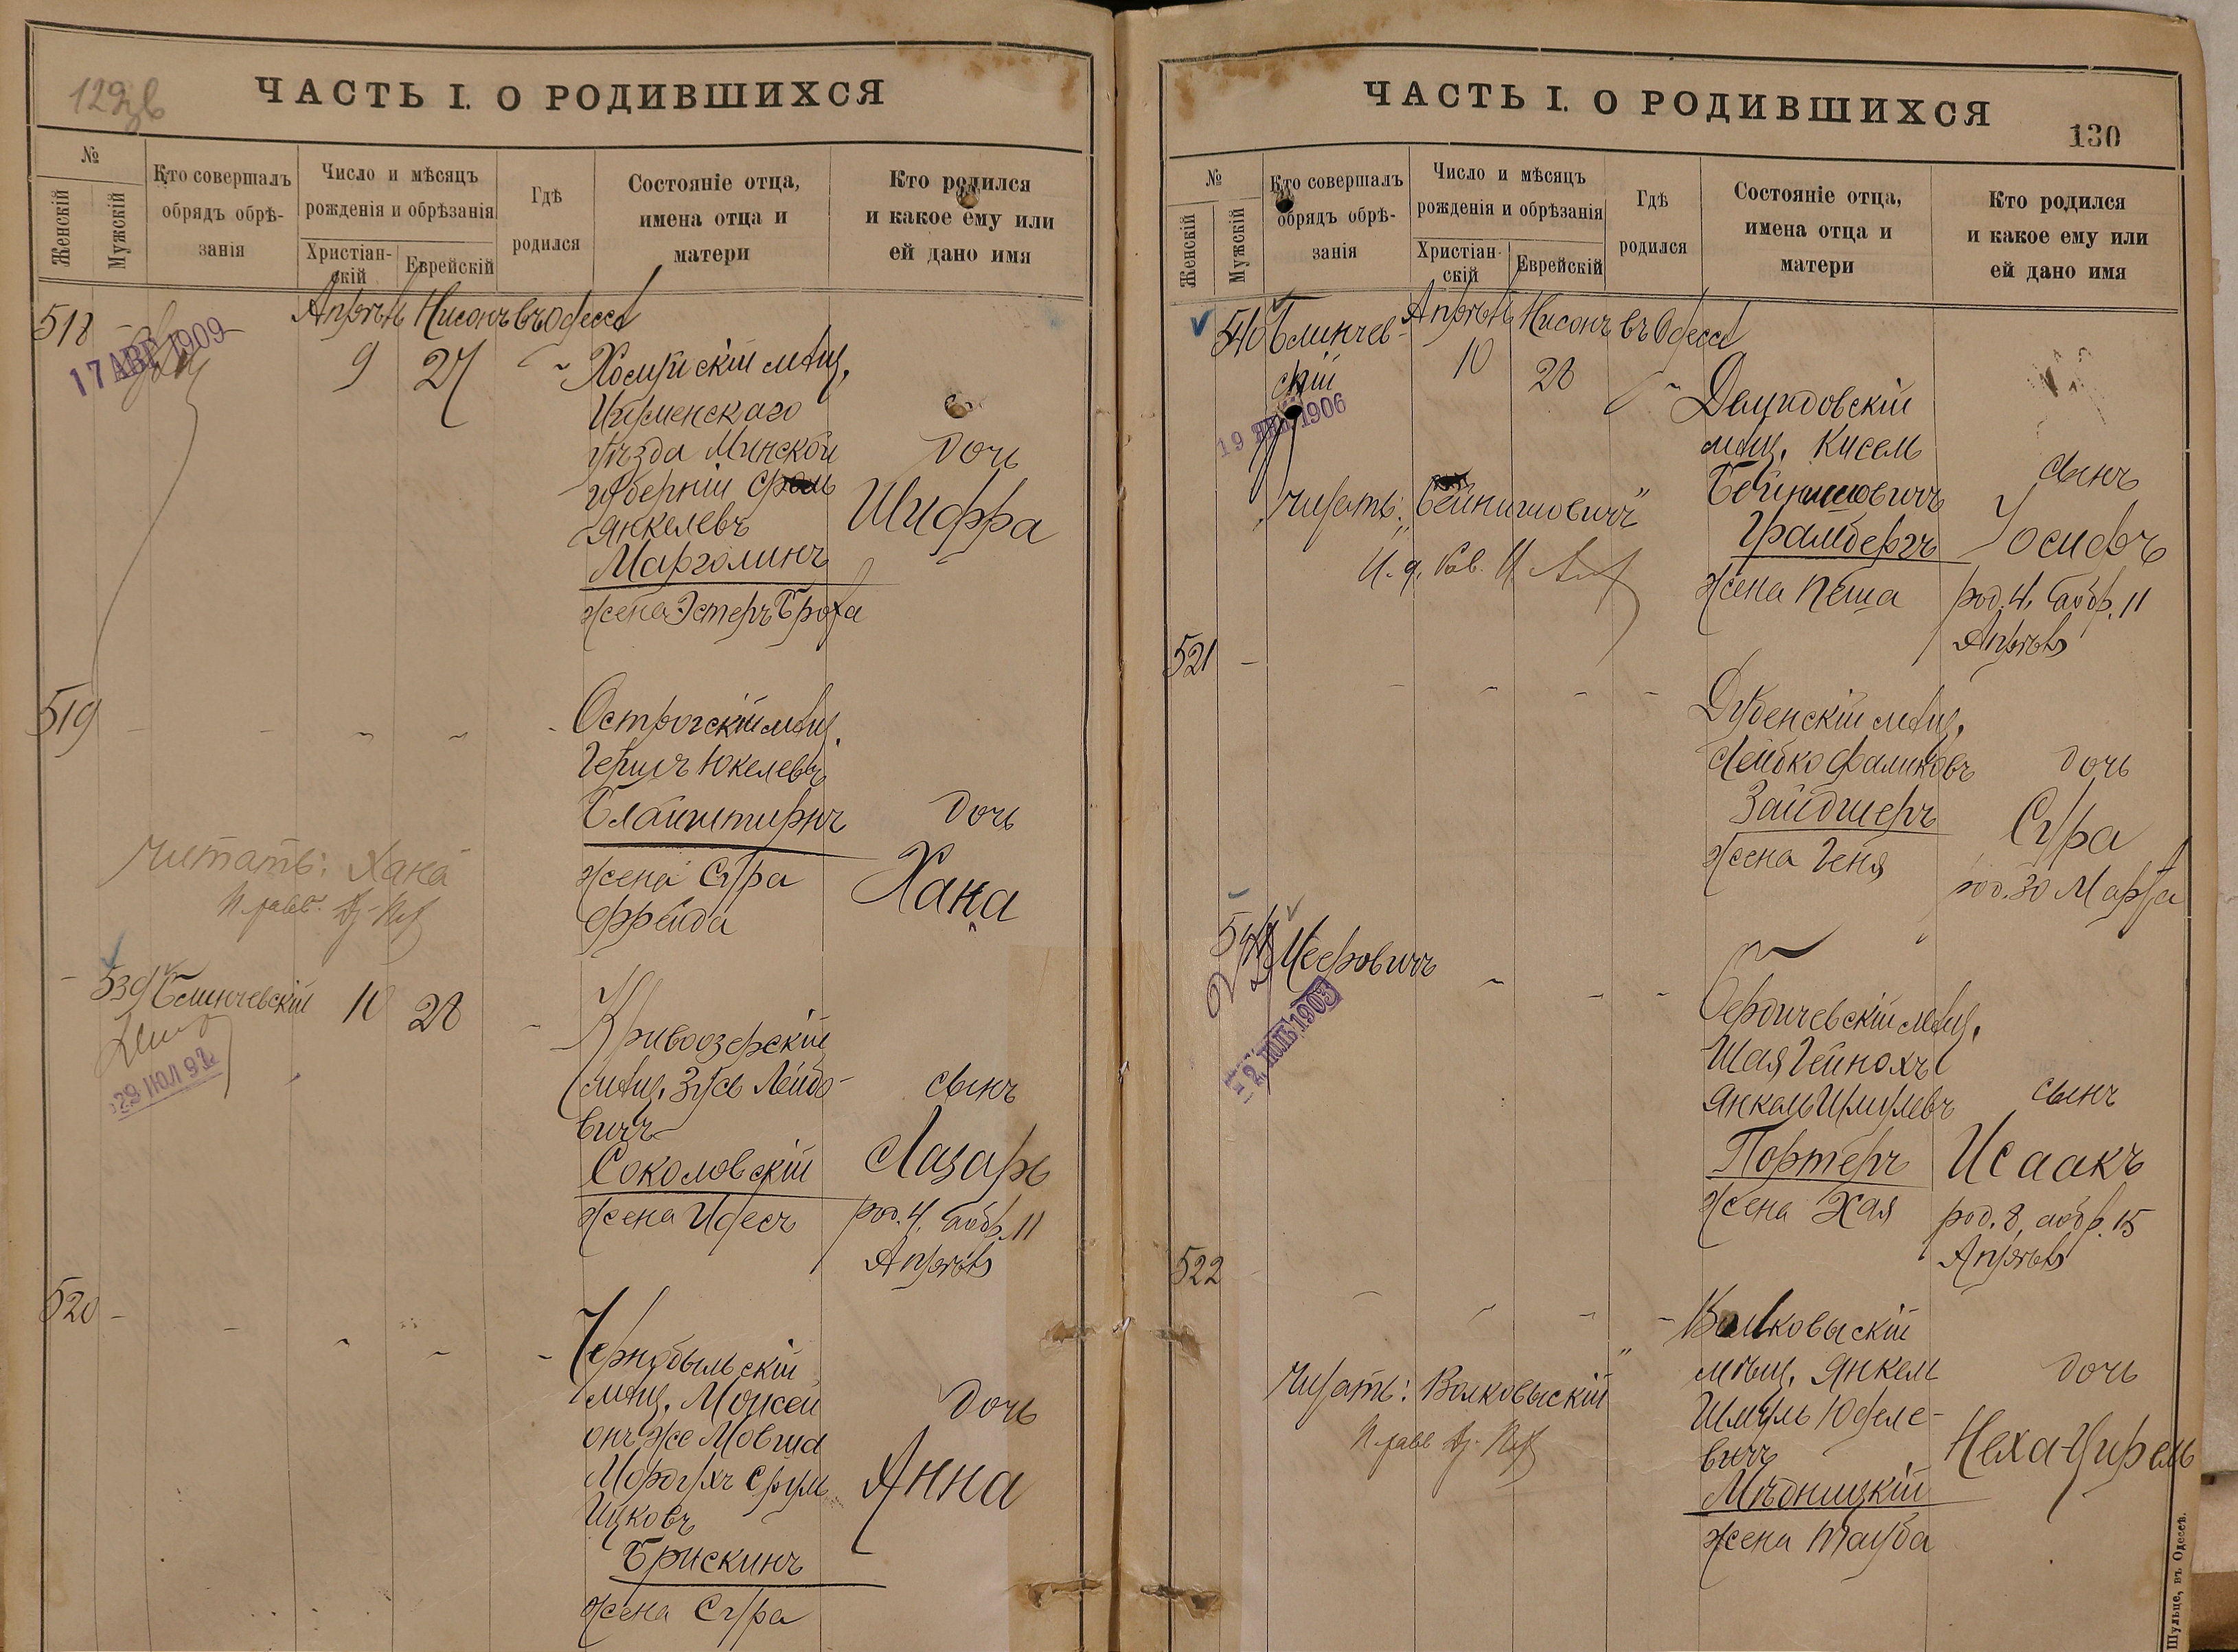 129
ЧАСТЬ I. О РОДИВШИХСЯ
№
Женскій
Мужскій
Кто совершалъ
обрядъ обрѣ-
занія
Число и мѣсяцъ
рожденія и обрѣзанія
Христіан-
скій
Еврейскій
Гдѣ
родился
Состояніе отца,
имена отца и
матери
Кто родился
и какое ему или
ей дано имя
518 -
17 АВГ 1909
Апрѣль Нисонъ въ Одессѣ
9 27
Хосмискій мѣщ.
Игуменскаго
уѣзда Минской
губерніи Сроль
Янкелевъ
Марголинъ
жена Эстеръ Броха
дочь
Шифра
519 - - - - -
Острогскій мѣщ.
Гершъ Юкелевъ
Блаиштирнъ
жена Сура
Фрейда
дочь
Хана
читать: Хана
- 539 Блинчевскій 10 28 -
29 ІЮЛ 92
Кривоозерскій
мѣщ. Зусь Лейбо-
вичъ
Соколовскій
жена Идесъ
сынъ
Лазарь
род. 4, а обр. 11
Апрѣля
520 - - - - -
Чернобыльскій
мѣщ. Мойсей
онъ же Мовша
Мордухъ Сруль
Ицковъ
Брискинъ
жена Сура
дочь
Анна
ЧАСТЬ I. О РОДИВШИХСЯ
130
№
Женскій
Мужскій
Кто совершалъ
обрядъ обрѣ-
занія
Число и мѣсяцъ
рожденія и обрѣзанія
Христіан-
скій
Еврейскій
Гдѣ
родился
Состояніе отца,
имена отца и
матери
Кто родился
и какое ему или
ей дано имя
540 Блинчев-
скій
19 1906
Апрѣль Нисонъ въ Одессѣ
10 28
Демидовскій
мѣщ. Кисель
Бейнишовичъ
Грамбергъ
жена Пеша
сынъ
Іосифъ
род. 4, а обр. 11
Апрѣля
читать: „Бейнишовичъ"
521 - - - - -
Дубенскій мѣщ.
Лейбко Фаликовъ
Зайдшеръ
жена Геня
дочь
Сура
род. 30 Марта
541 Мееровичъ - - -
2 1903
Бердичевскій мѣщ.
Шая Гейнохъ
Янкель Шмулевъ
Портеръ
жена Хая
сынъ
Исаакъ
род. 8, а обр. 15
Апрѣля
522 - - - -
Волковыскій
мѣщ. Янкель
Шмуль Юделе-
вичъ
Мѣдницкій
жена Тауба
дочь
Неха-Цирель
читать: Волковыскій"
Шульце, въ Одессѣ.